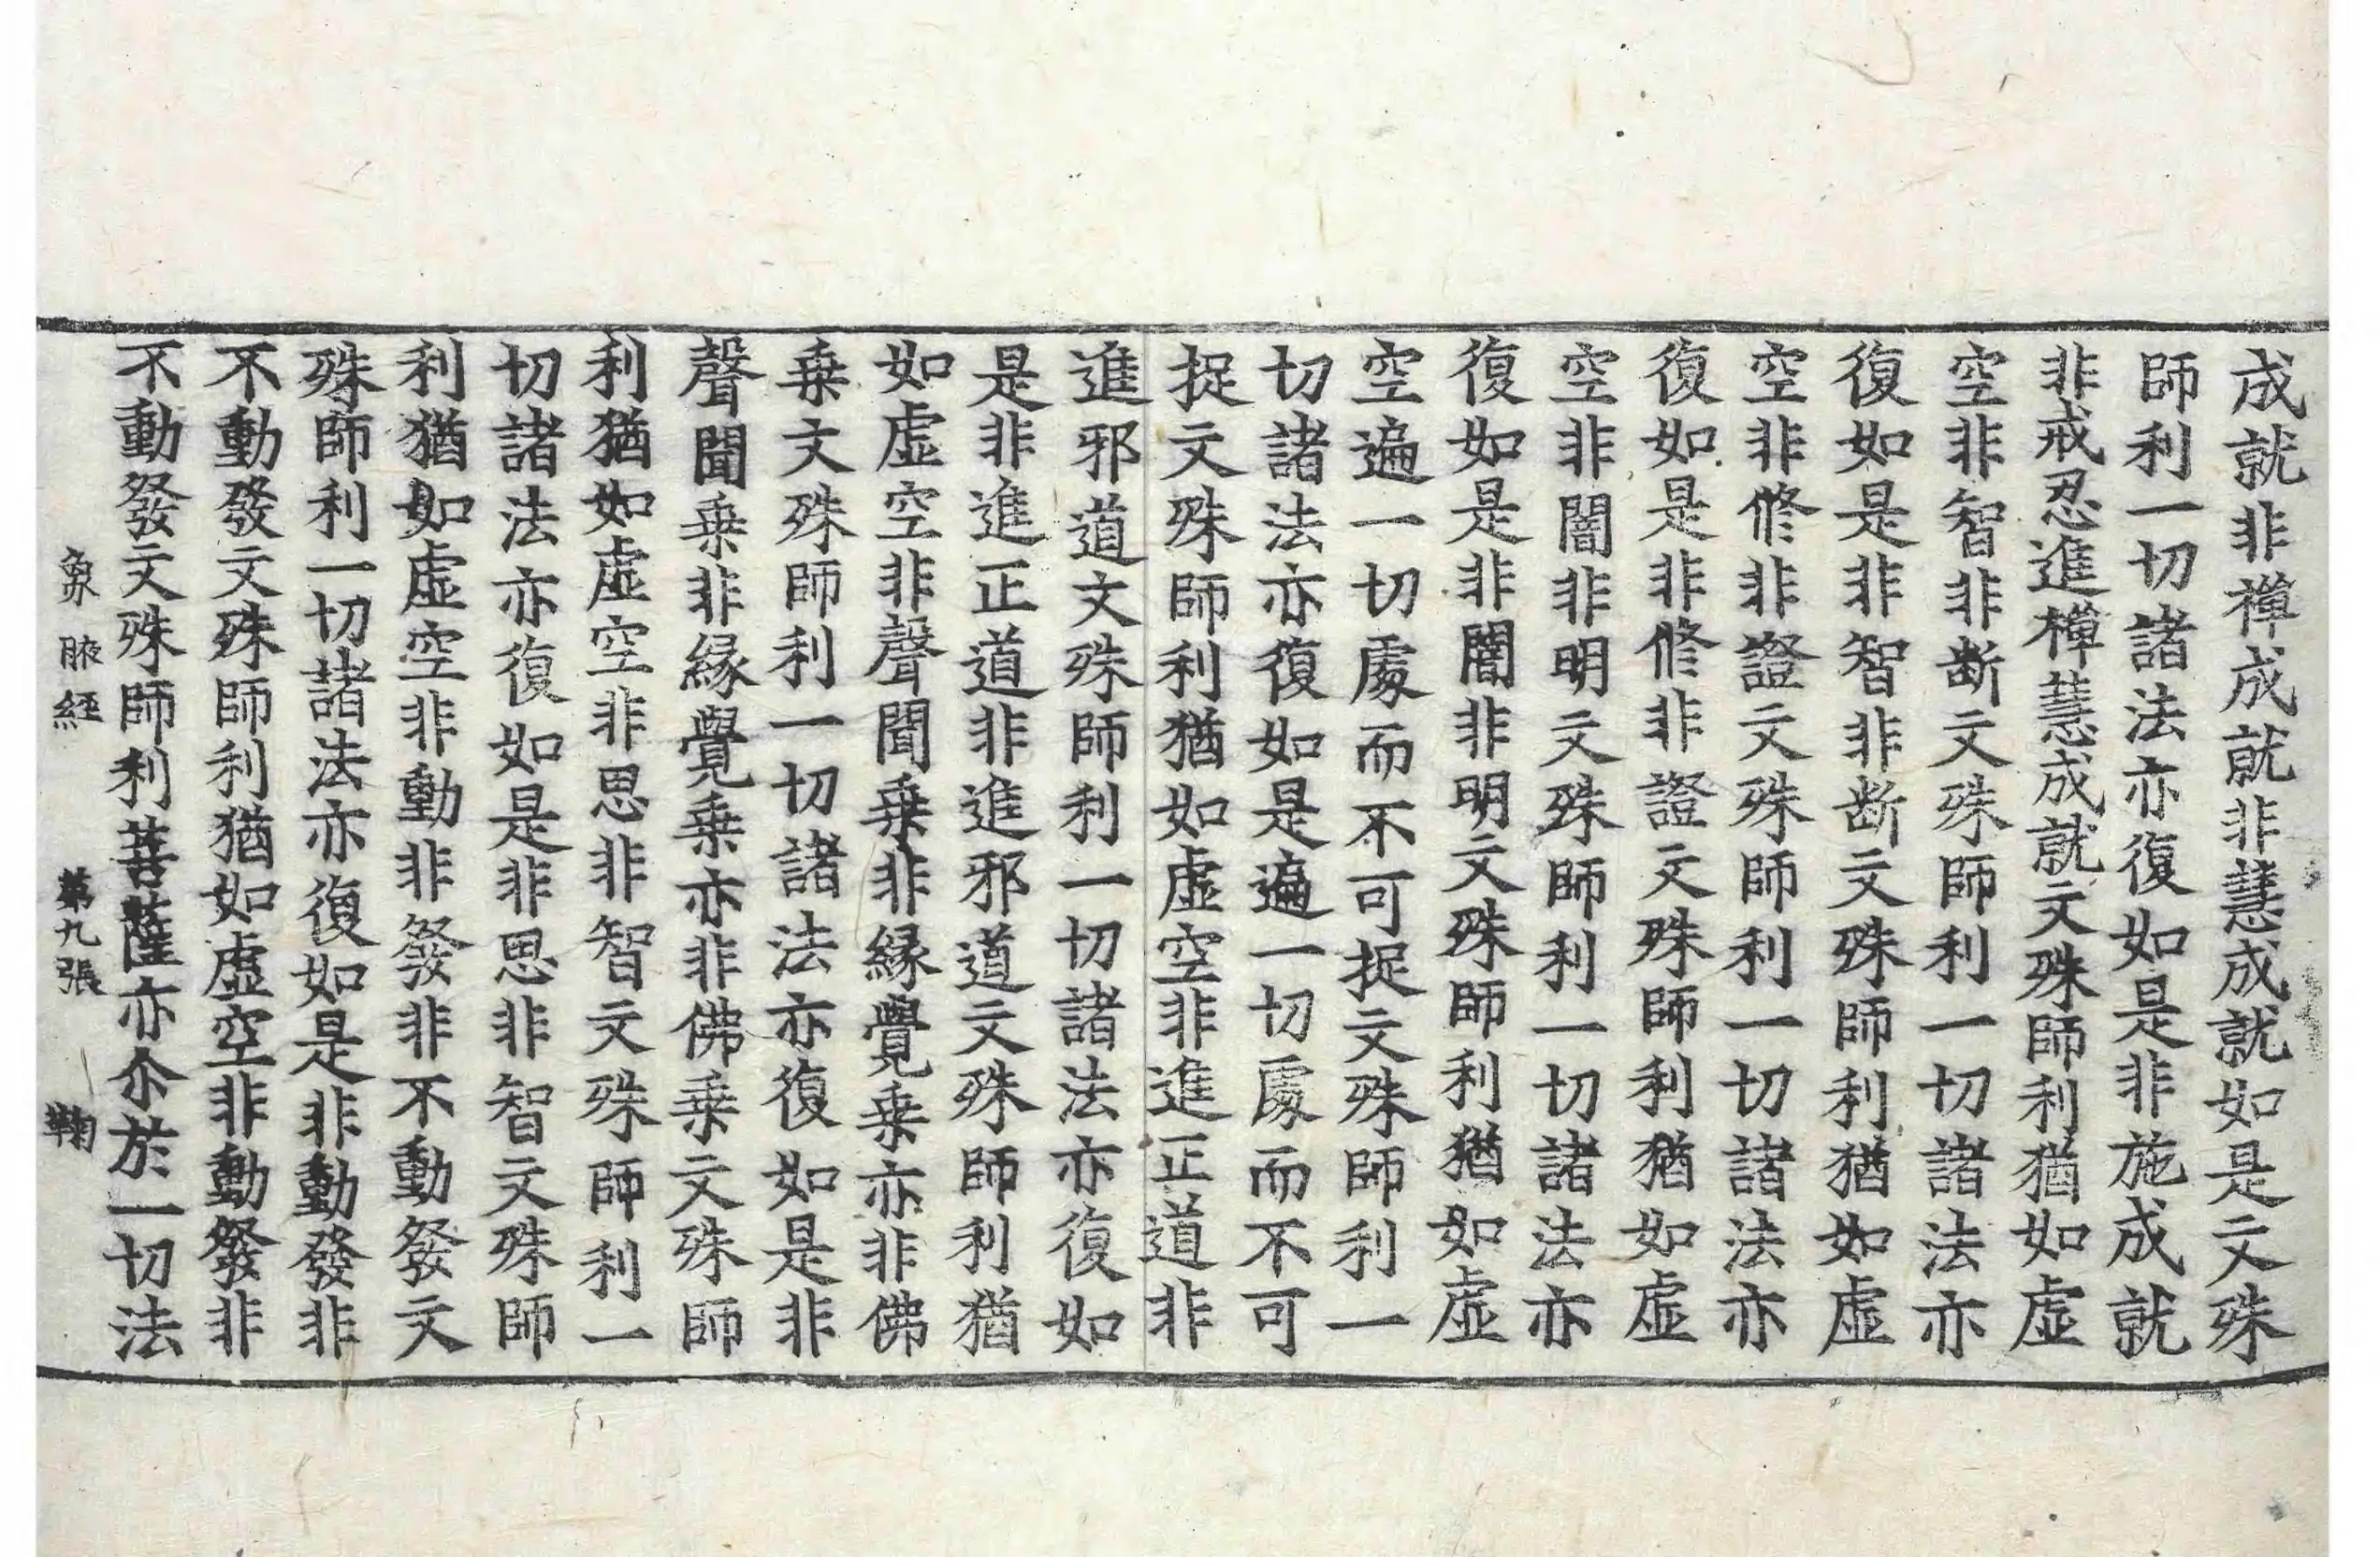 成就非禪成就非慧成就如是文殊
師利一切諸法亦復如是非施成就
非戒忍進禪慧成就文殊師利猶如虛
空非智非断文殊師利一切諸法亦
復如是非智非断文殊師利猶如虛
空非修非證文殊師利一切諸法亦
復如是非修非證文殊師利猶如虛
空非闇非明文殊師利一切諸法亦
復如是非闇非明文殊師利猶如虛
空遍一切處而不可捉文殊師利一
切諸法亦復如是遍一切處而不可
捉文殊師利猶如虛空非進正道非
進邪道文殊師利一切諸法亦復如
是非進正道非進邪道文殊師利猶
如虛空非聲聞乗非縁覺乗亦非佛
乗文殊師利一切諸法亦復如是非
聲聞乗非縁覺乗亦非佛乗文殊師
利猶如虛空非思非智文殊師利一
切諸法亦復如是非思非智文殊師
利猶如虛空非動非發非不動發文
殊師利一切諸法亦復如是非動發非
不動發文殊師利猶如虛空非動發非
不動發文殊師利菩薩亦尒於一切法
象腋経 第九張 鞠